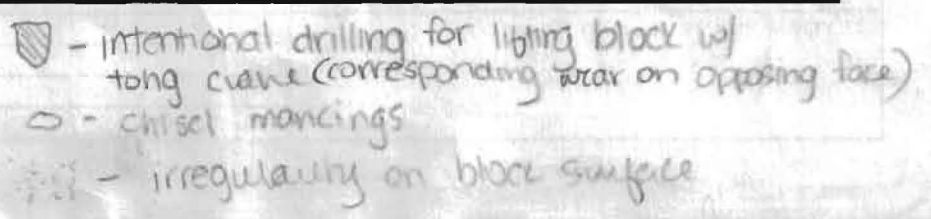 - intentional drilling for lifting block w/
tong crane (corresponding wear on opposing face)
- chisel markings
- irregularity on block surface